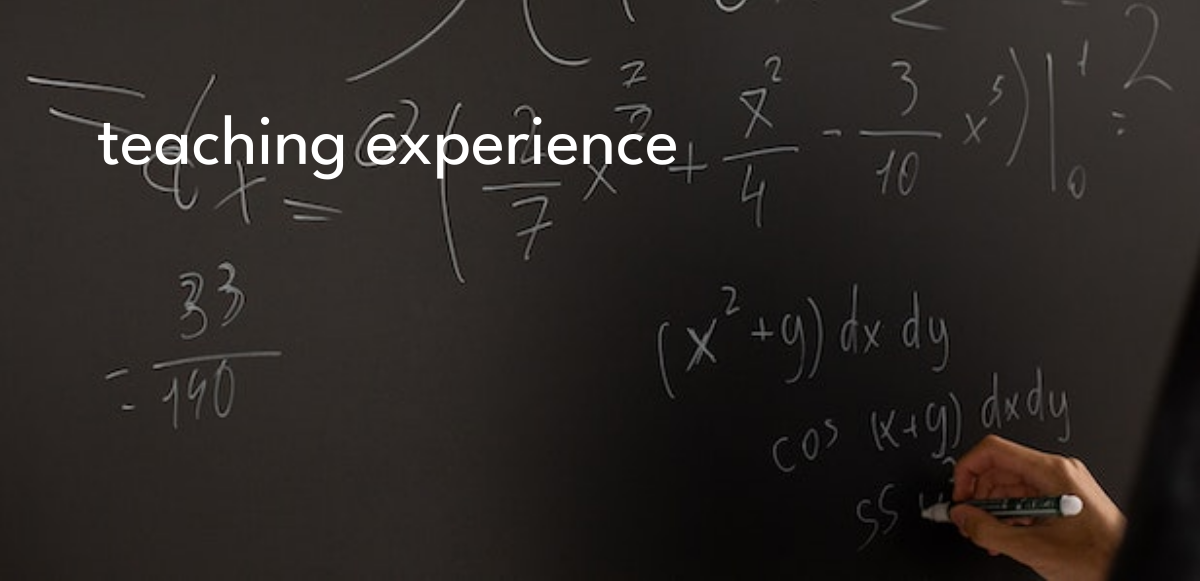 2
teaching experience
dx = ( 2/7 x^(7/2) + x^2/4 - 3/10 x^5 ) |_0^1 =
= 33/140
(x^2 + y) dx dy
cos (x+y) dx dy